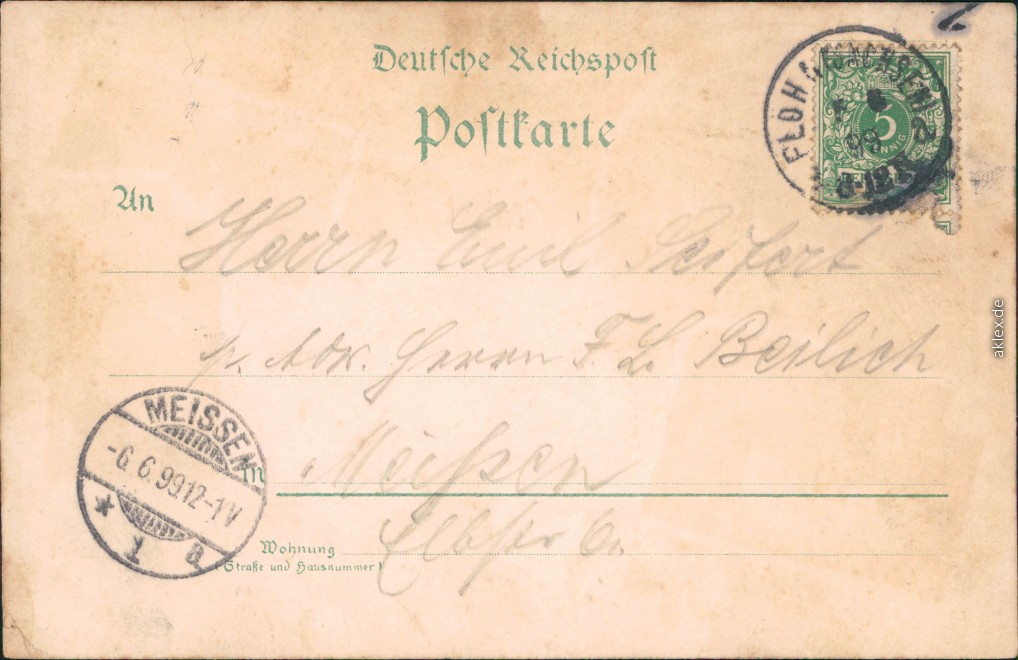 Deutsche Reichspost
Postkarte
FLÖHA (SACHSEN)
99
8-12 V
5
PFENNIG
An
Herrn Emil Seifert
p. Adr. Herrn F. L. Beilich
in Meißen
Elbstr 6.
Wohnung
(Straße und Hausnummer)
MEISSEN
-6.6.99.12-1V
* 1 a
aklex.de